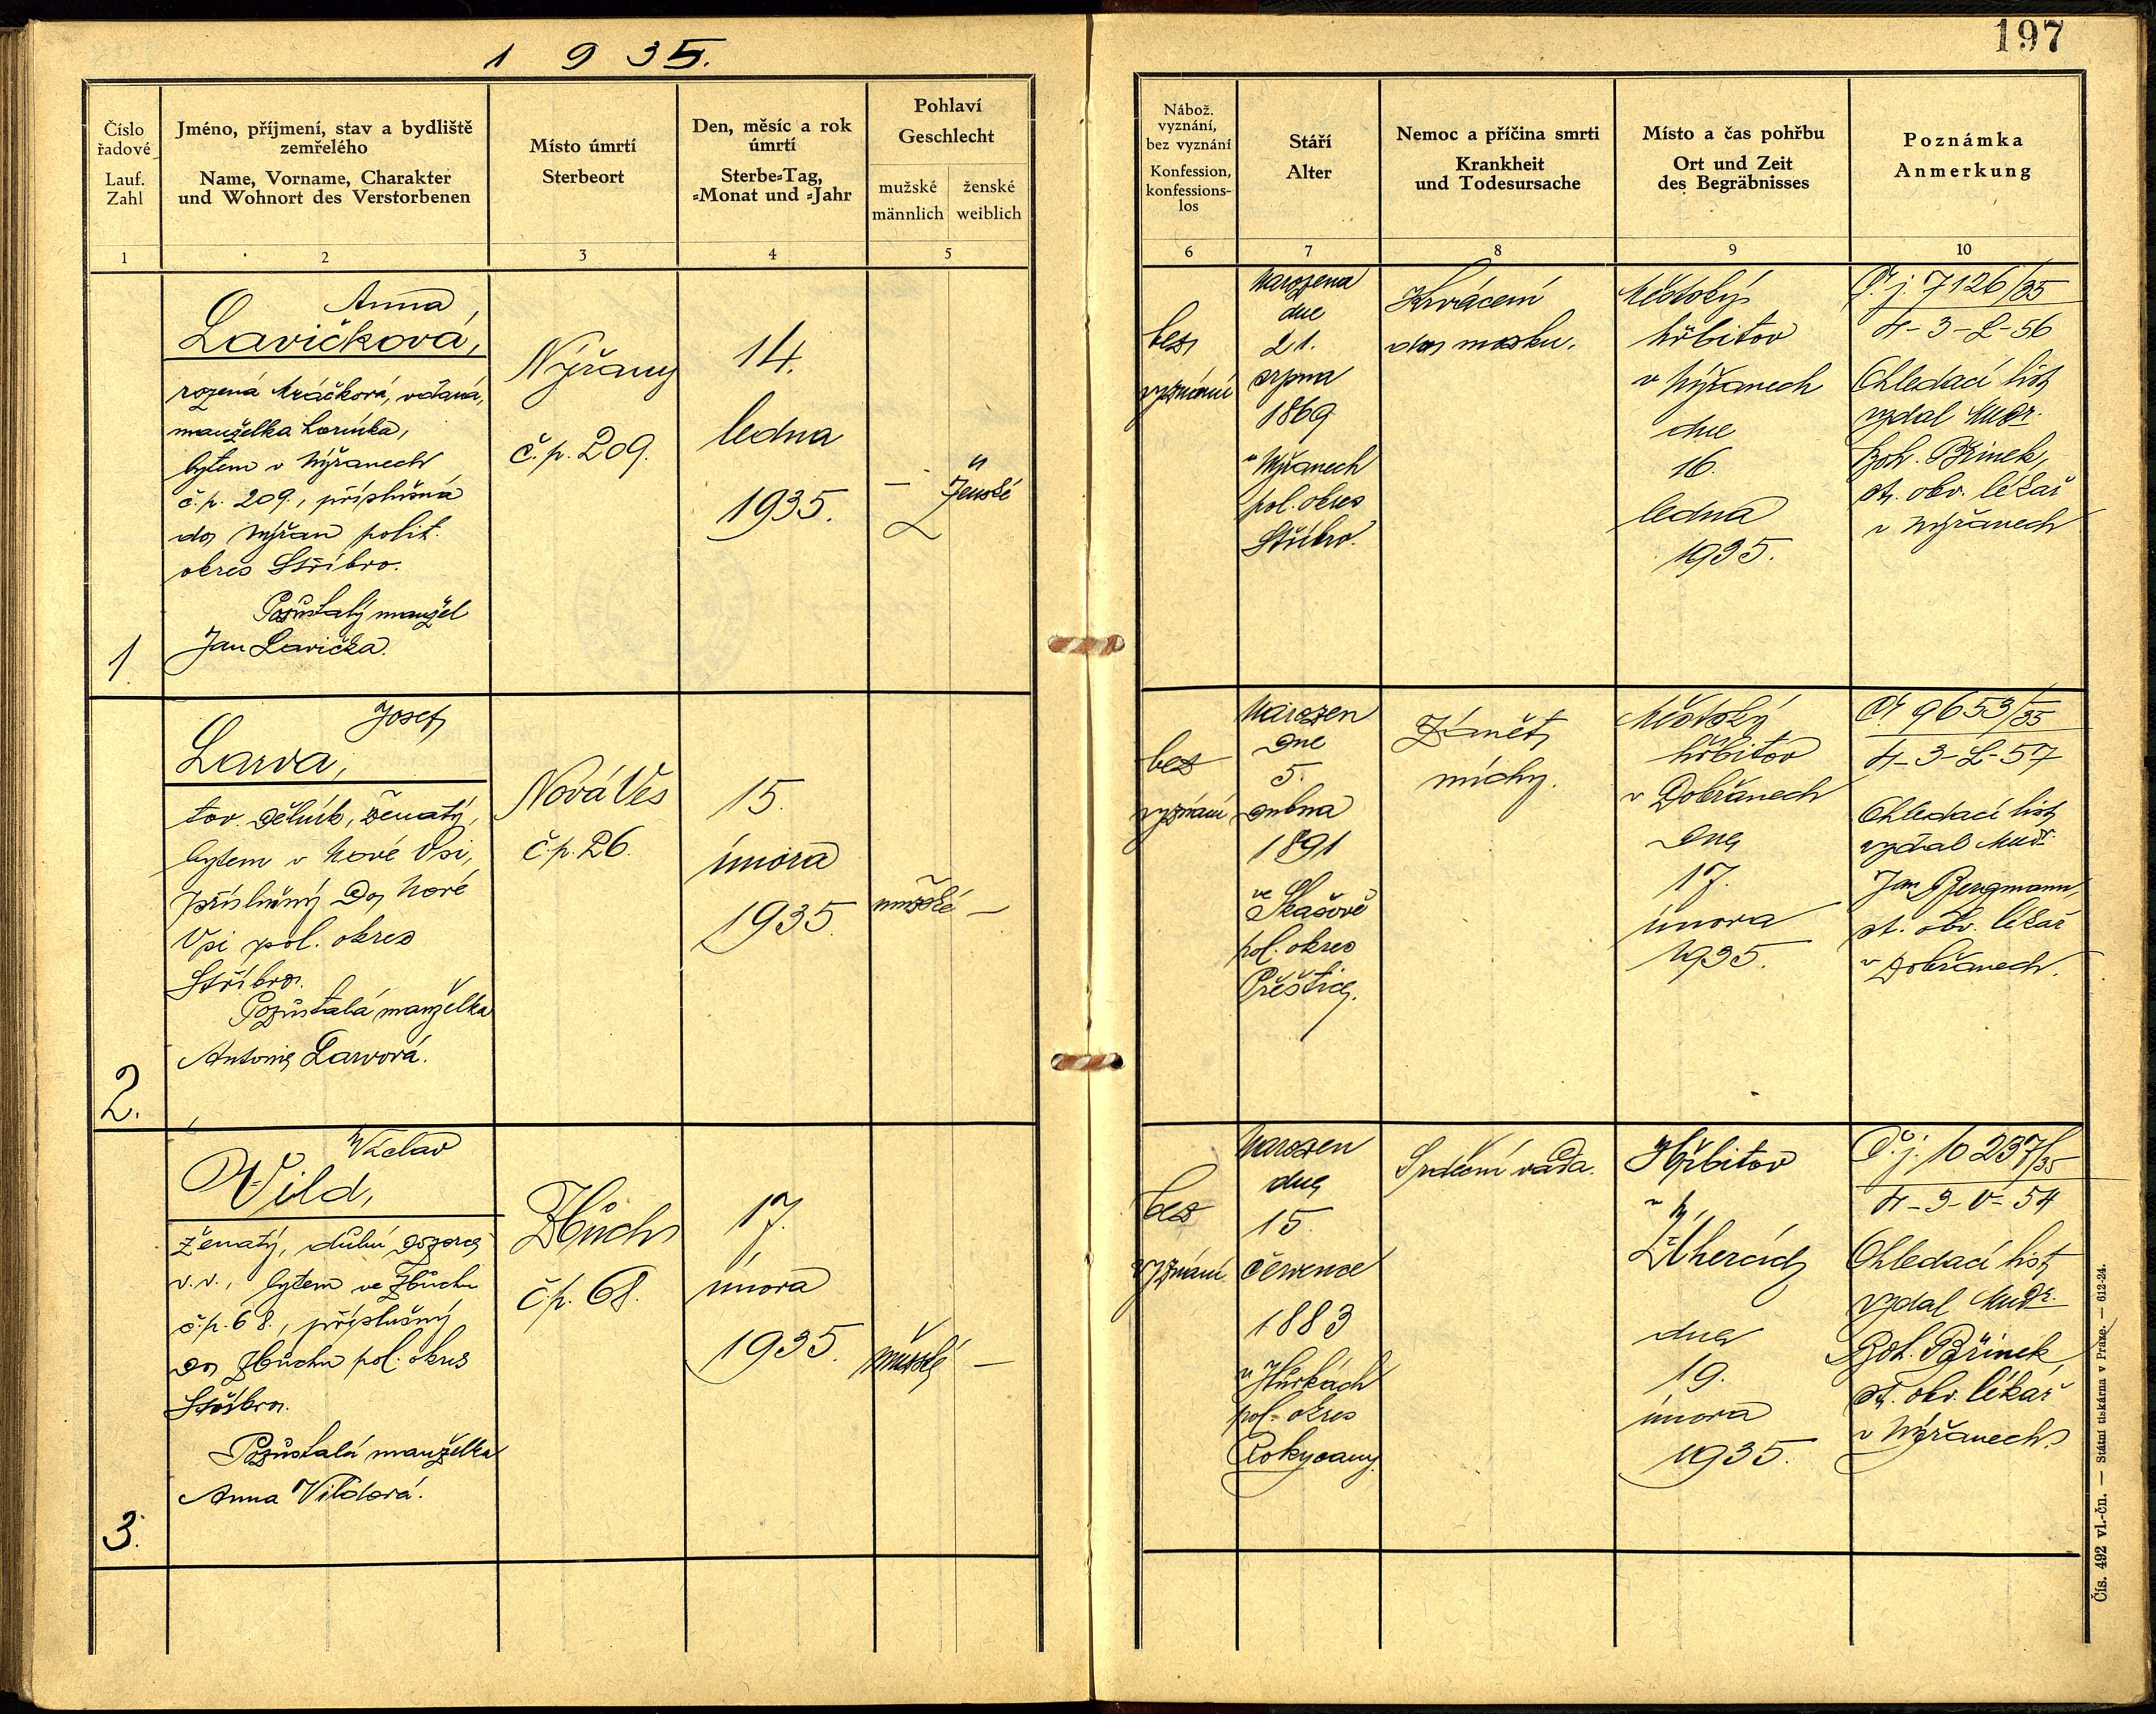 1935.
197
Číslo
řadové
Lauf.
Zahl
Jméno, příjmení, stav a bydliště
zemřelého
Name, Vorname, Charakter
und Wohnort des Verstorbenen
Místo úmrtí
Sterbeort
Den, měsíc a rok
úmrtí
Sterbe=Tag,
=Monat und =Jahr
Pohlaví
Geschlecht
mužské
männlich
ženské
weiblich
Nábož.
vyznání,
bez vyznání
Konfession,
konfessions-
los
Stáří
Alter
Nemoc a příčina smrti
Krankheit
und Todesursache
Místo a čas pohřbu
Ort und Zeit
des Begräbnisses
Poznámka
Anmerkung
1
2
3
4
5
6
7
8
9
10
1
Anna
Lavičková,
rozená Kráčková, vdaná,
manželka horníka,
bytem v Nýřanech
č.p. 209., příslušná
do Nýřan polit.
okres Stříbro.
Pozůstalý manžel
Jan Lavička.
Nýřany
č.p. 209.
14.
ledna
1935.
—
ženské
bez
vyznání
Narozena
dne
21.
srpna
1869
v Nýřanech
pol. okres
Stříbro.
Krvácení
do mozku.
Městský
hřbitov
v Nýřanech
dne
16.
ledna
1935.
Č. j. 7126/35
4-3-L-56
Ohledací list
vydal Mudr.
Boh. Břinek,
st. obv. lékař
v Nýřanech
2.
Josef
Larva,
tov. dělník, ženatý,
bytem v Nové Vsi,
příslušný do Nové
Vsi pol. okres
Stříbro.
Pozůstalá manželka
Antonie Larvová.
Nová Ves
č.p. 26.
15.
února
1935.
mužské —
bez
vyznání
Narozen
dne
5.
dubna
1891
ve Skašově
pol. okres
Přeštice.
Zánět
míchy.
Městský
hřbitov
v Dobřanech
dne
17.
února
1935.
Čj 9653/35
4-3-L-57
Ohledací list
vydal Mudr.
Jan Bergmann,
st. obv. lékař
v Dobřanech.
3.
Václav
Vild,
ženatý, důlní dozorce
v.v., bytem ve Zbůchu
č.p. 68., příslušný
do Zbůchu pol. okres
Stříbro.
Pozůstalá manželka
Anna Vildová.
Zbůch
č.p. 68.
17.
února
1935.
mužské —
bez
vyznání
Narozen
dne
15.
července
1883
v Hůrkách
pol. okres
Rokycany
Srdeční vada.
Hřbitov
v
Úhercích
dne
19.
února
1935.
Č. j. 10237/35
4-3-V-54
Ohledací list
vydal Mudr.
Boh. Břinek,
st. obv. lékař
v Nýřanech.
Čís. 492 vl.-čn. — Státní tiskárna v Praze. — 612-24.